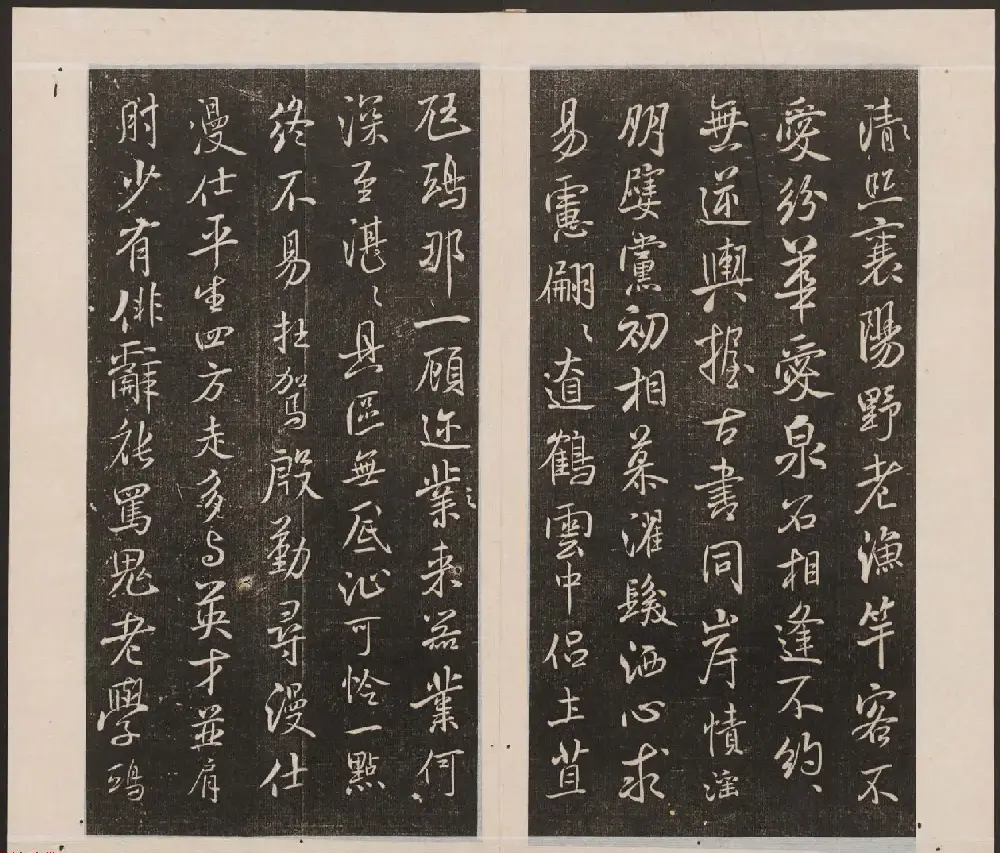 清照襄陽野老漁竿客不
愛紛華愛泉石相逢不約〻
無逆輿握古書同岸幘淫
朋嬖黨初相慕濯髮洒心求
易慮翩〻遼鶴雲中侣土苴
尫鴟那一顧迩業来器業何
深至湛〻具區無底沚可怜一點
終不易枉駕殷勤尋漫仕
漫仕平生四方走多与英才並肩
肘少有俳辭能罵鬼老學鴟